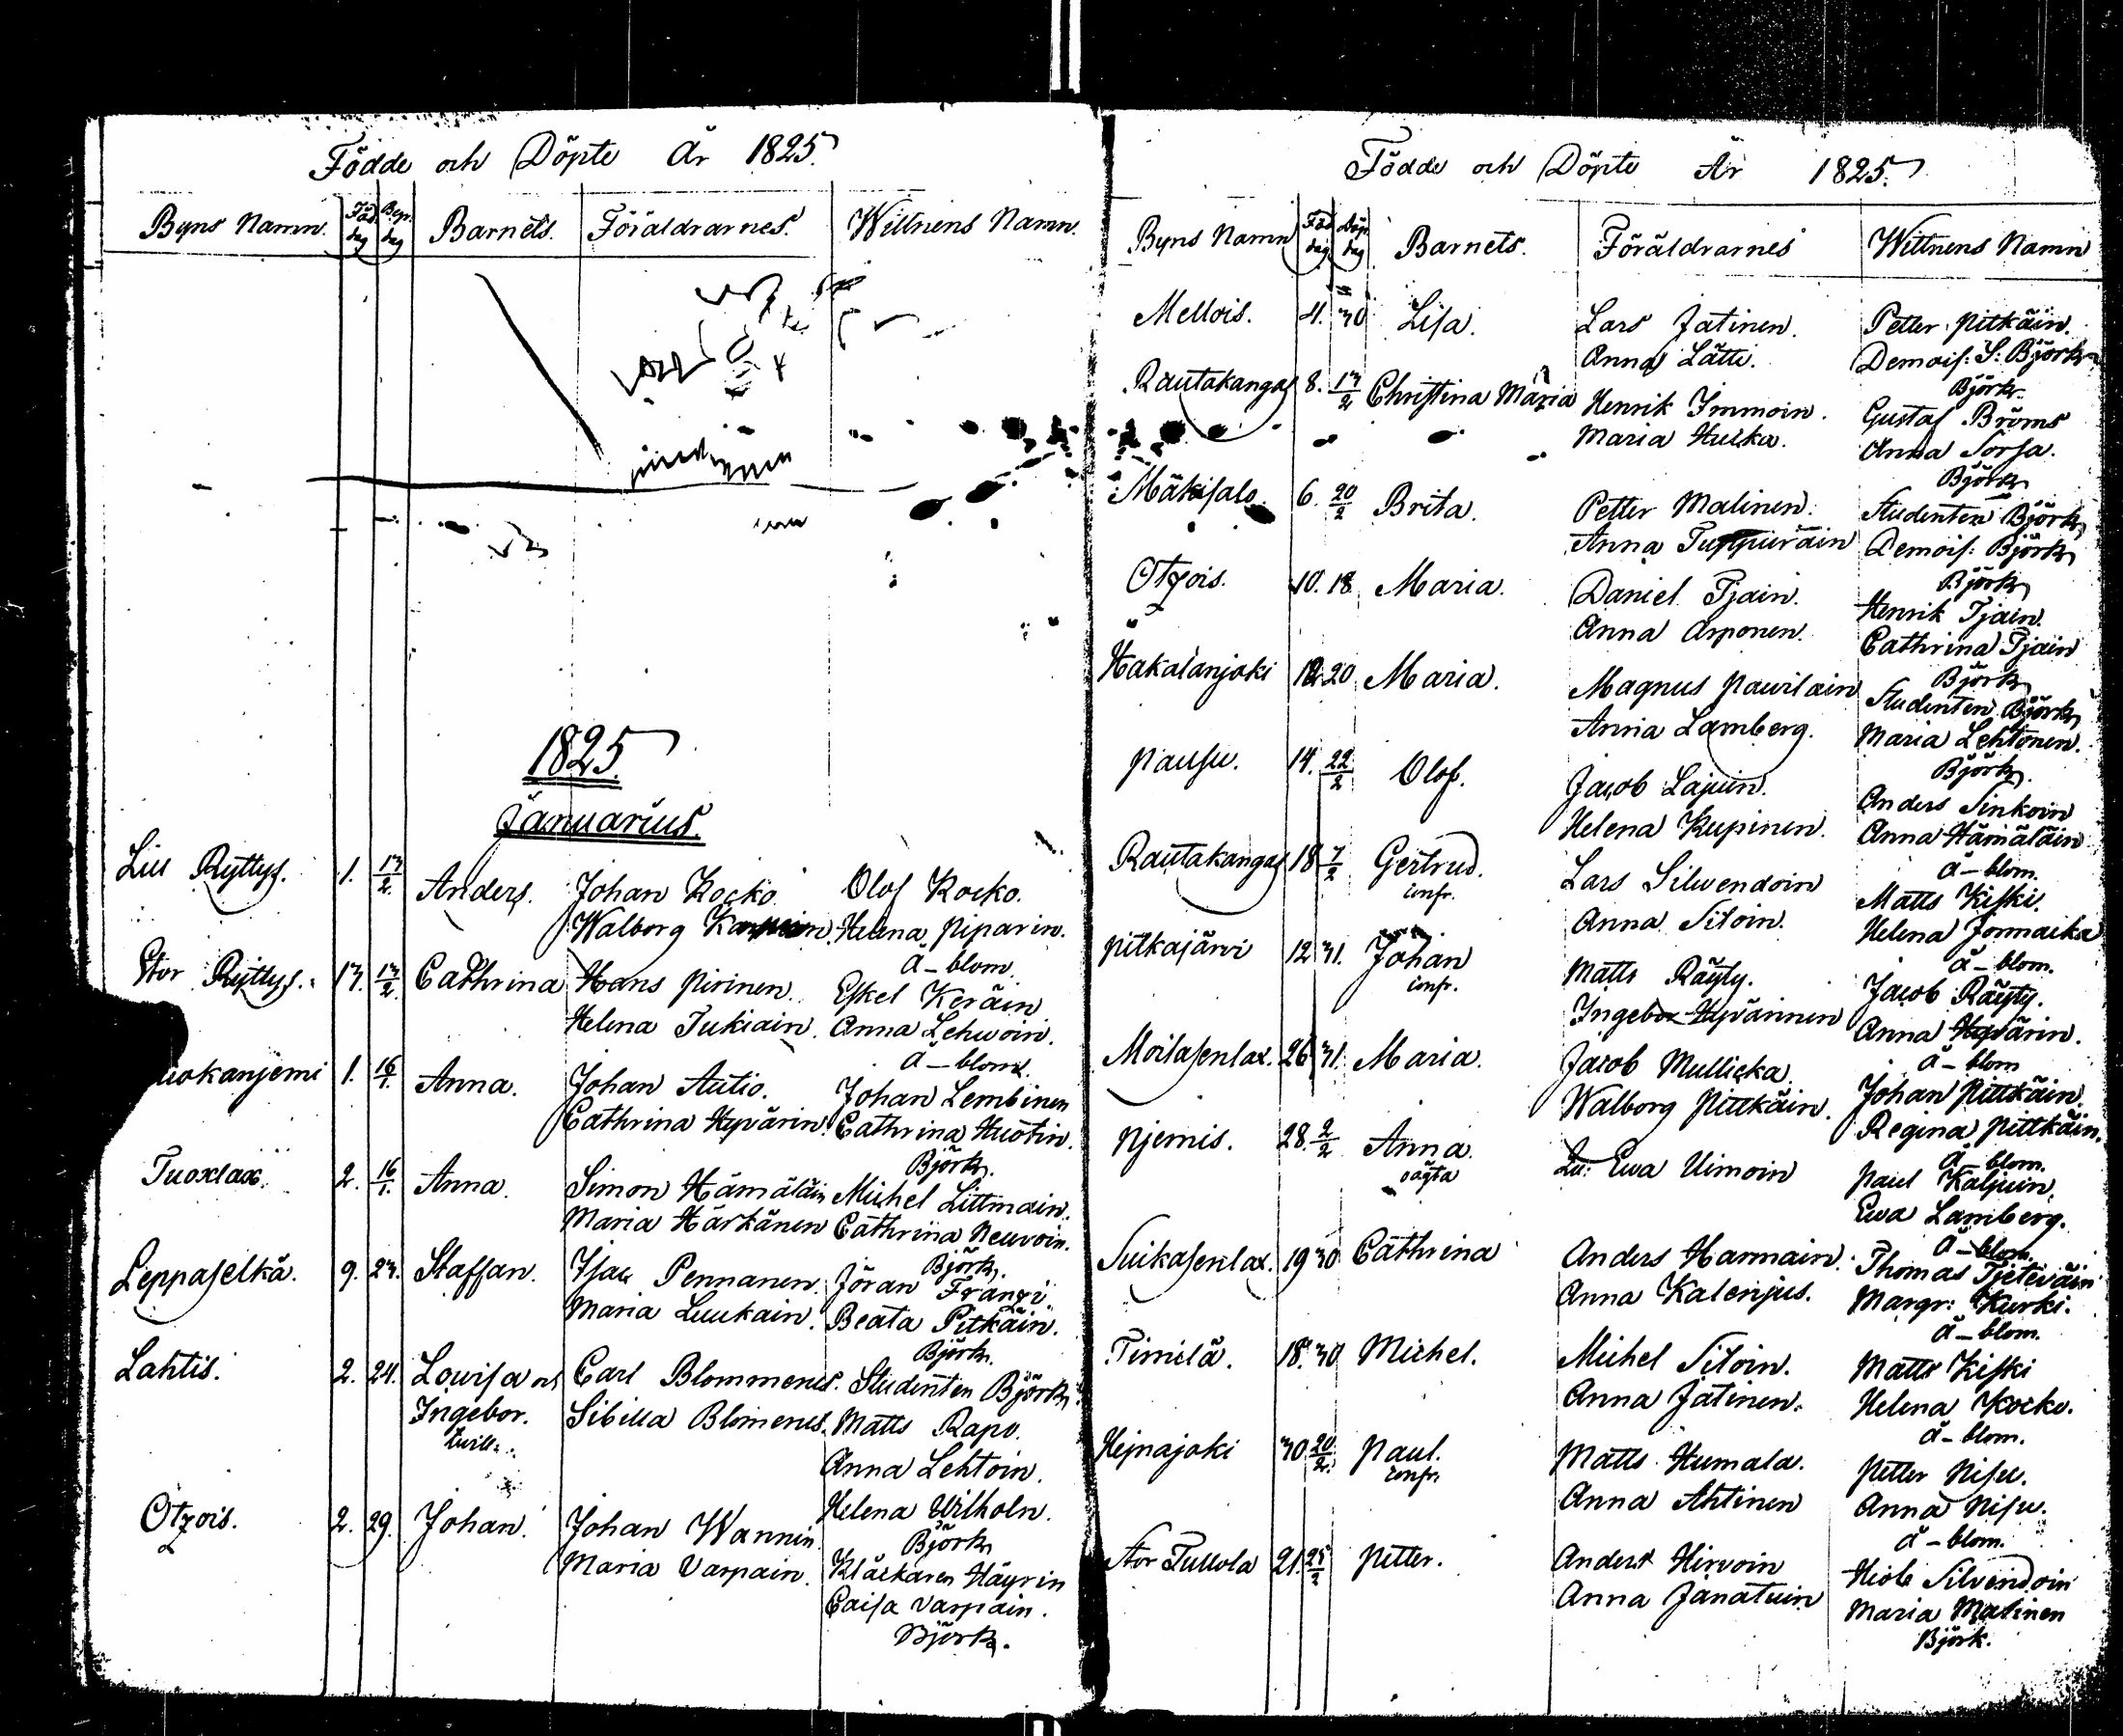 Födde och Döpte År 1825.
Byns Namn. Föd. dag Bap. dag Barnets. Föräldrarnes. Wittnens Namn.
1825.
Januarius.
Lill Ryttys. 1. 13/2. Anders. Johan Kocko Olof Kocko.
Walborg Helena Piparin.
å-blom.
Stor Ryttys. 13. 13/2. Cathrina Hans Pirinen. Eskel Keräin
Helena Tukiain. Anna Lehwoin.
å-blom.
uokanjemi 1. 16/1. Anna. Johan Autio. Johan Lembinen
Cathrina Hyvärin. Cathrina Huotin.
Björk.
Tuoxlax. 2. 16/1. Anna. Simon Hämäläin Michel Littmain.
Maria Härkänen Cathrina Neuvoin.
Björk.
Leppäselkä. 9. 23. Staffan. Isac Pennanen. Jöran Franzi.
Maria Luukain. Beata Pitkäin.
Björk.
Lahtis. 2. 24. Lovisa och Carl Blommerus. Studenten Björk.
Ingebor. Sibilla Blomerus. Matts Rapo.
tvill:. Anna Lehtoin.
Helena Wilholn.
Björk
Otzois. 2. 29. Johan. Johan Wannin. Kläckaren Häyrin
Maria Varpain. Caisa Varpain.
Björk.
Födde och Döpte År 1825.
Byns Namn Föd. dag Döp. dag Barnets. Föräldrarnes Wittnens Namn
Mellois. 4. 30 Lisa. Lars Jatinen. Petter Pitkäin.
Anna Lätti. Demois: S: Björk
Björk.
Rautakangas 8. 13/2 Christina Maria Henrik Immoin. Gustaf Broms
Maria Hucka. Anna Sorsa.
Björk
Mäkisalo. 6. 20/2 Brita. Petter Malinen. Studenten Björk
Anna Tuppuräin Demois: Björk
Björk
Otzois. 10. 18 Maria. Daniel Tjain. Henrik Tjain.
Anna Asponen. Cathrina Tjain
Björk
Hakalanjoki 12 20 Maria. Magnus Pavilain Studenten Björk
Anna Lamberg. Maria Lehtonen.
Björk.
Pausu. 14. 22/2 Olof. Jacob Lajuin. Anders Sinkoin
Helena Kupinen. Anna Hämäläin
å-blom.
Rautakangas 18 7/2 Gertrud. Lars Silvendoin Matts Kiski.
confr. Anna Siloin. Helena Jormacka
å-blom.
Pitkajärvi 12 31. Johan Matts Räyty. Jacob Räyty.
confr. Ingebor Hyvärinnen Anna Hyvärin.
å-blom
Moilasenlax. 26 31. Maria. Jacob Mullicka Johan Pittkäin
Walborg Pittkäin. Regina Pittkäin.
å-blom.
Njemis. 28. 2/2 Anna. Lö: Ewa Uimoin Paul Kaljuin.
oägta Ewa Lamberg.
å-blom.
Suikasenlax. 19 30 Cathrina Anders Harmain. Thomas Tjeteväin
Anna Kalenjus. Margr: Kurki.
å-blom.
Timilä. 18. 30 Michel. Michel Siloin. Matts Kiski
Anna Jatinen. Helena Kocko.
å-blom.
Hejnajoki 30 20/2. Paul. Matts Humala. Petter Nisu.
confr. Anna Ahtinen Anna Nisu.
å-blom.
Stor Tullola 21. 25/2 Petter. Anders Hirvoin Hiob Silvendoin
Anna Janatuin Maria Malinen
Björk.